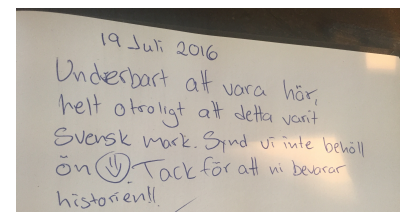 19 Juli 2016
Underbart att vara här,
helt otroligt att detta varit
Svensk mark. Synd vi inte behöll
ön Tack för att ni bevarar
historien!!